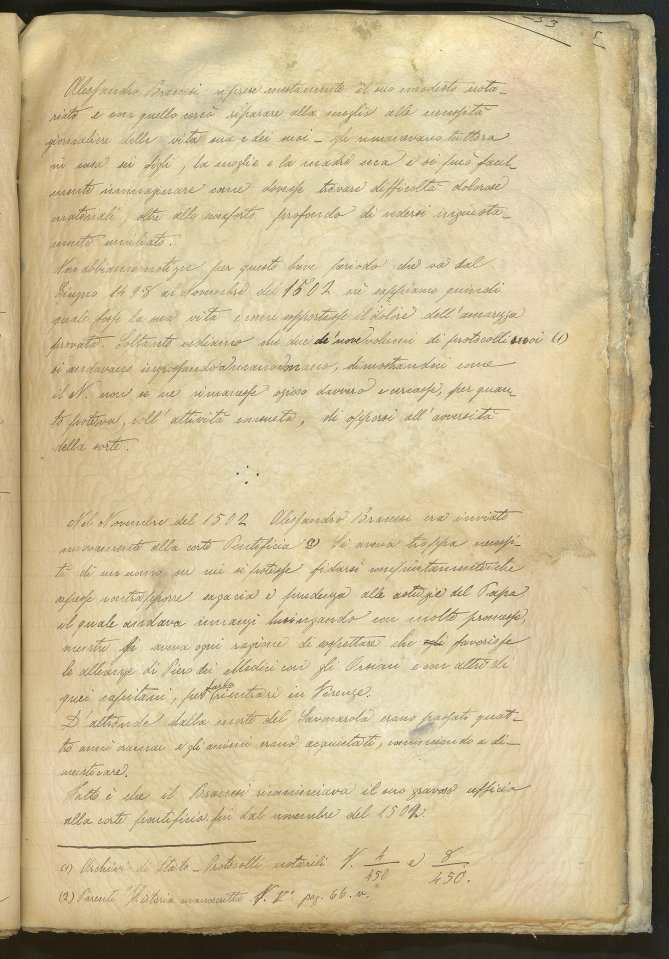 33
Alessandro Braccesi riprese mestamente il suo modesto nota-
riato e con quello cercò riparare alla meglio alle necessità
giornaliere della vita sua e dei suoi - gli rimanevano tuttora
in casa sei figli, la moglie e la madre e si può facil-
mente immaginare come dovesse trovare difficoltà dolorose
materiali, oltre allo sconforto profondo di vedersi ingiusta-
mente umiliato.
Non abbiamo notizie per questo breve periodo che va dal
Giugno 1498 al Novembre del 1502 nè sappiamo quindi
quale fosse la sua vita e come sopportasse il dolore dell'amarezza
provata. Soltanto vediamo che due de' nove volumi di protocolli suoi (1)
si andavano ingrossando a mano a mano, dimostrandoci come
il N. non se ne rimanesse ozioso davvero e cercasse, per quan-
to poteva, coll'attività consueta, di opporsi all'avversità
della sorte.
Nel Novembre del 1502 Alessandro Braccesi era inviato
nuovamente alla corte Pontificia Si aveva troppa necessi-
tà di un uomo su cui si potesse fidarsi completamente che
sapesse contrapporre sagacia e prudenza alle astuzie del Papa
il quale andava innanzi lusingando con molte promesse,
mentre si aveva ogni ragione di sospettare che favorisse
le alleanze di Piero dei Medici con gli Orsini e con altri di
quei capitani, per farlo rientrare in Firenze.
D'altronde dalla morte del Savonarola erano passati quat-
tro anni oramai e gli animi erano acquietati, cominciando a di-
menticare.
Fatto è che il Braccesi ricominciava il suo gravoso ufficio
alla corte pontificia fin dal novembre del 1502.
(1) Archivi di Stato - Protocolli notarili N. 4/450 e 8/450.
(2) Parenti "Historia manuscritta N. V° pag. 66. v.